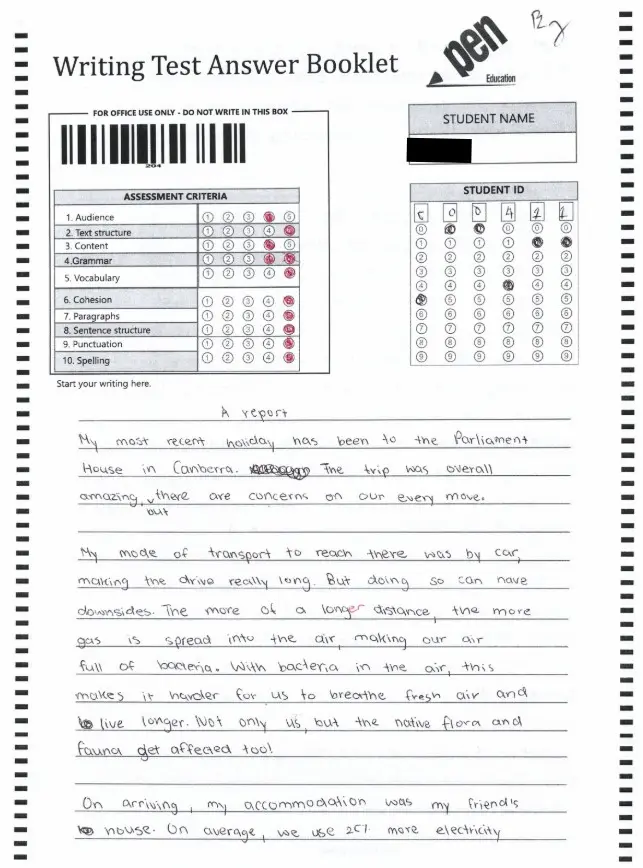 Writing Test Answer Booklet
pen
Education
FOR OFFICE USE ONLY - DO NOT WRITE IN THIS BOX
204
STUDENT NAME
ASSESSMENT CRITERIA
1. Audience ① ② ③ ⑤
2. Text structure ① ② ③ ④
3. Content ① ② ③ ⑤
4.Grammar ① ② ③
5. Vocabulary ① ② ③ ④
6. Cohesion ① ② ③ ④
7. Paragraphs ① ② ③ ④
8. Sentence structure ① ② ③ ④
9. Punctuation ① ② ③ ④
10. Spelling ① ② ③ ④
STUDENT ID
0 0 4 1 1
⓪ ⓪ ⓪ ⓪
① ① ① ①
② ② ② ② ② ②
③ ③ ③ ③ ③ ③
④ ④ ④ ④ ④
⑤ ⑤ ⑤ ⑤ ⑤
⑥ ⑥ ⑥ ⑥ ⑥ ⑥
⑦ ⑦ ⑦ ⑦ ⑦ ⑦
⑧ ⑧ ⑧ ⑧ ⑧ ⑧
⑨ ⑨ ⑨ ⑨ ⑨ ⑨
Start your writing here.
A report
My most recent holiday has been to the Parliament
House in Canberra. The trip was overall
amazing, but there are concerns on our every move.
My mode of transport to reach there was by car,
making the drive really long. But doing so can have
downsides. The more of a longer distance, the more
gas is spread into the air, making our air
full of bacteria. With bacteria in the air, this
makes it harder for us to breathe fresh air and
live longer. Not only us, but the native flora and
fauna get affected too!
On arriving, my accommodation was my friend's
house. On average, we use more electricity